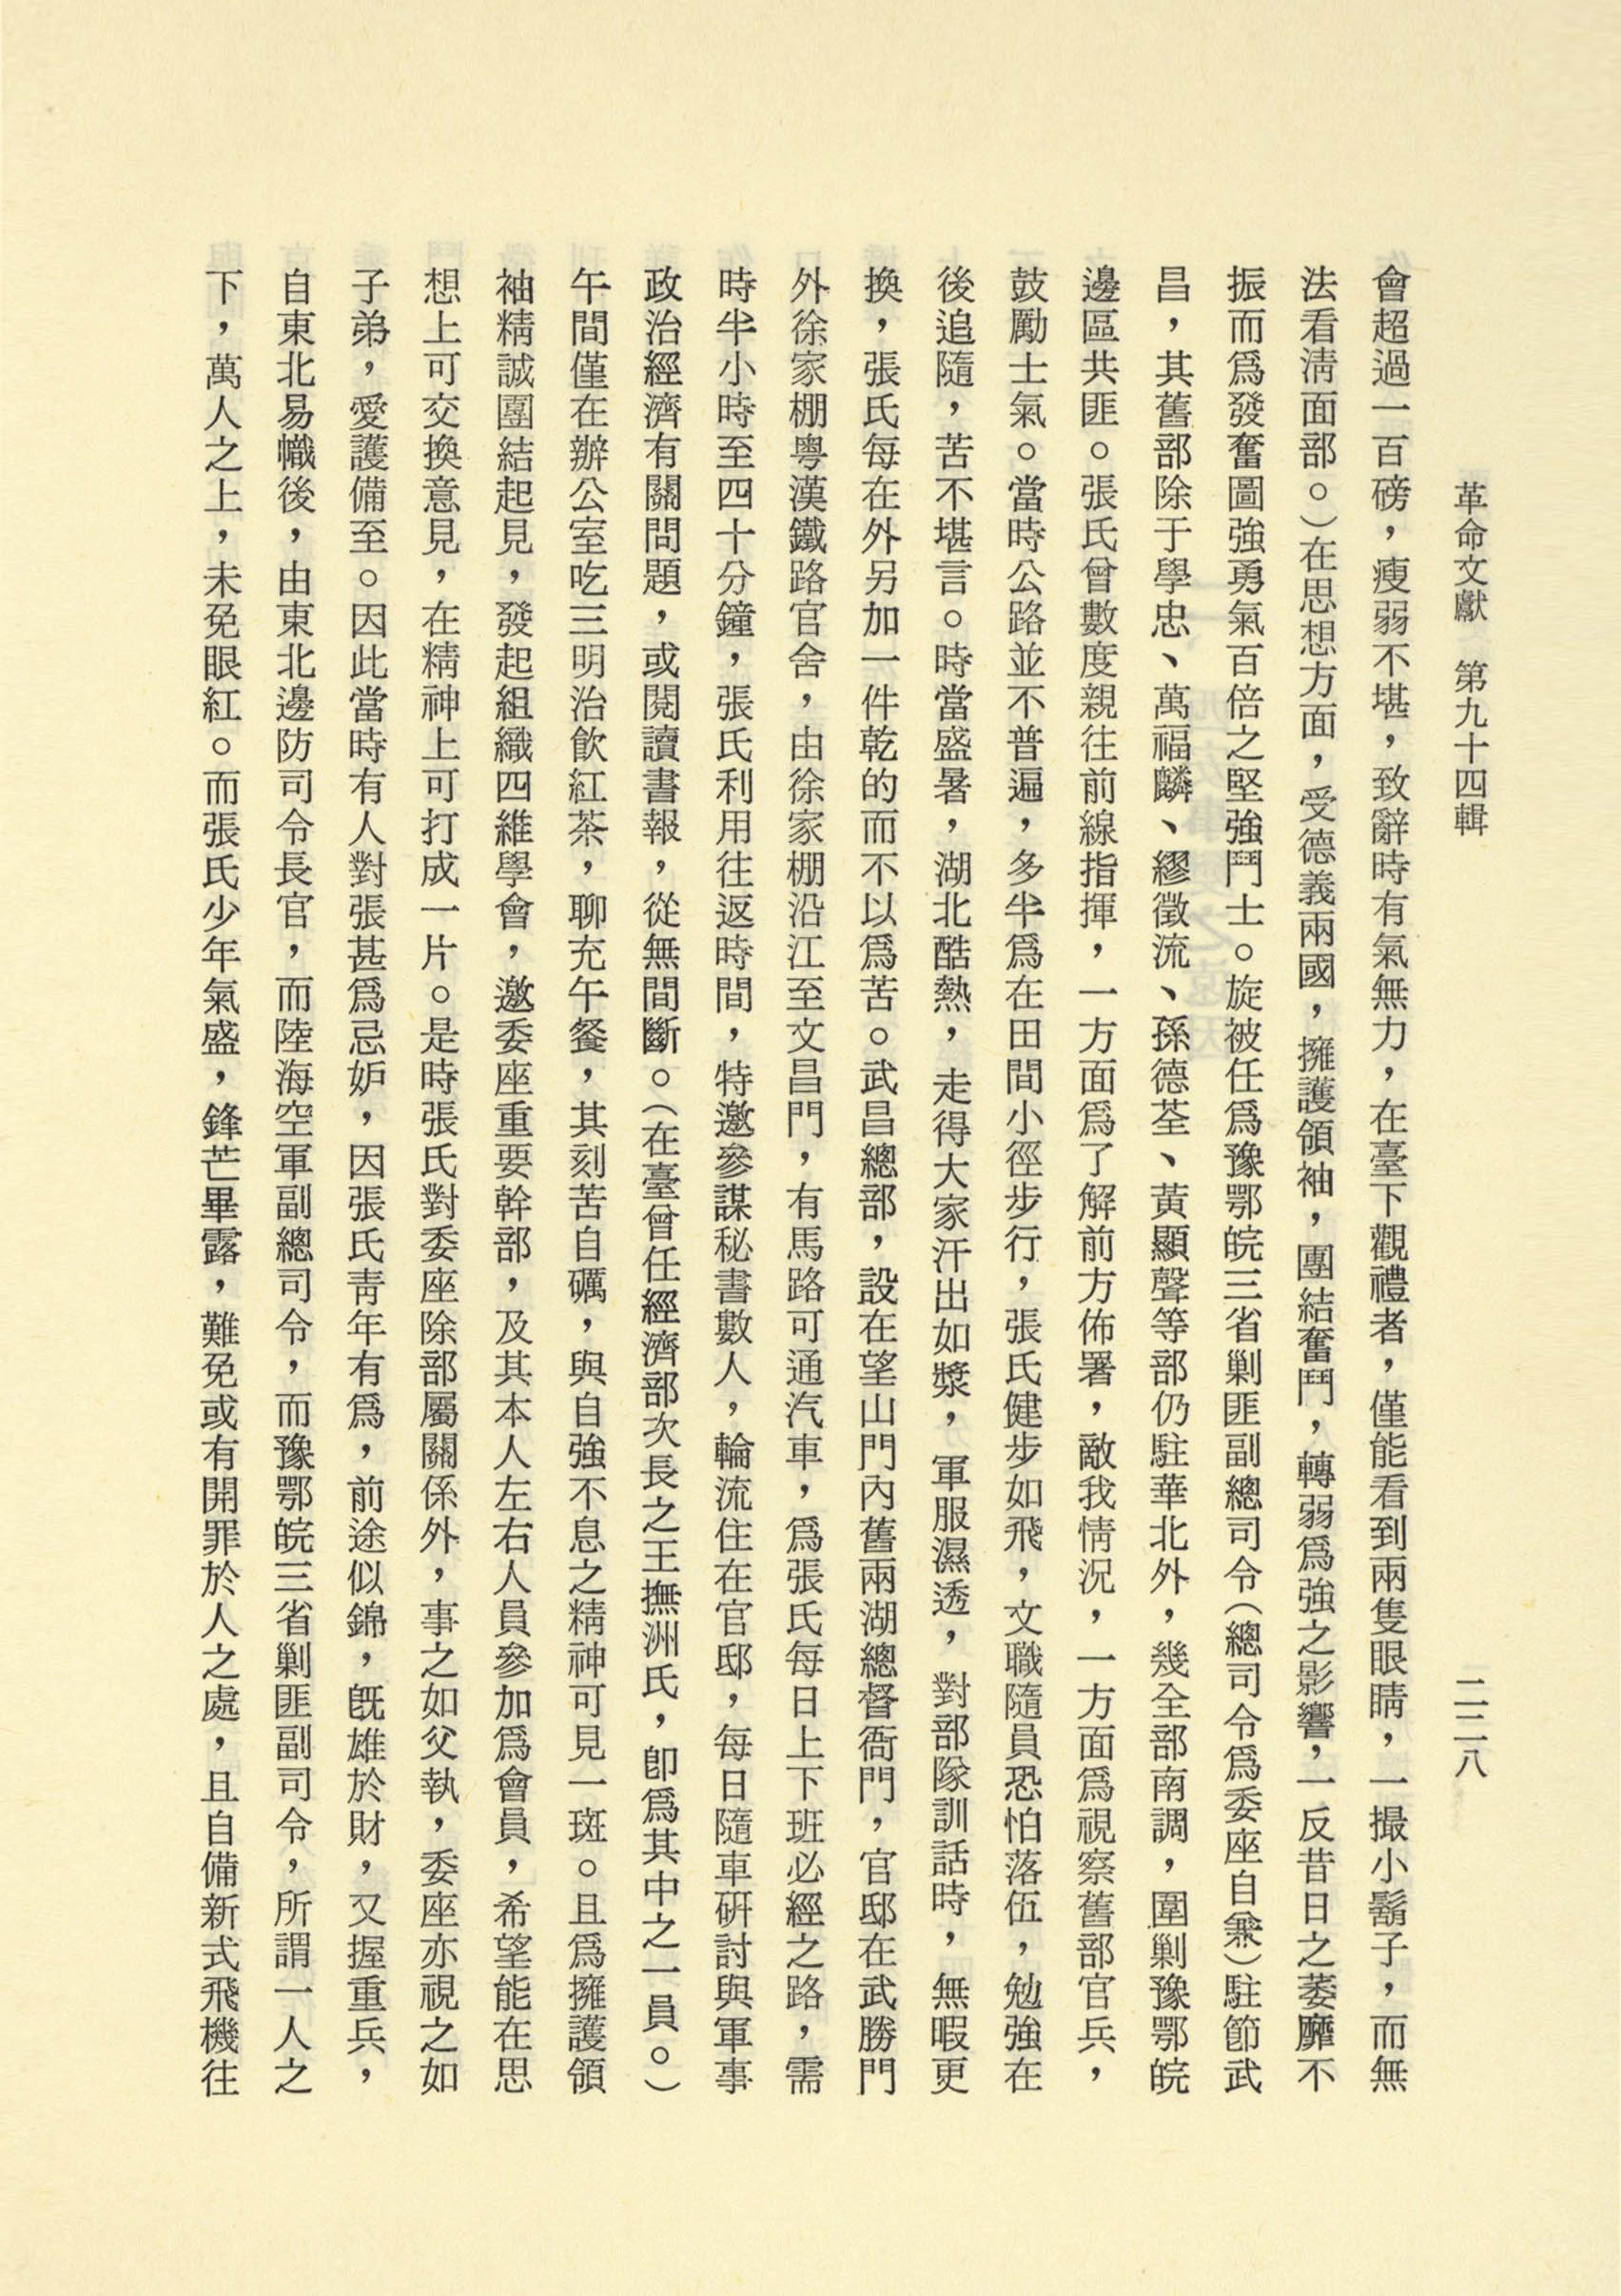 革命文獻　第九十四輯　二二八
會超過一百磅，瘦弱不堪，致辭時有氣無力，在臺下觀禮者，僅能看到兩隻眼睛，一撮小鬍子，而無
法看淸面部。）在思想方面，受德義兩國，擁護領袖，團結奮鬥，轉弱爲強之影響，一反昔日之萎靡不
振而爲發奮圖強勇氣百倍之堅強鬥士。旋被任爲豫鄂皖三省剿匪副總司令（總司令爲委座自兼）駐節武
昌，其舊部除于學忠、萬福麟、繆徵流、孫德荃、黃顯聲等部仍駐華北外，幾全部南調，圍剿豫鄂皖
邊區共匪。張氏曾數度親往前線指揮，一方面爲了解前方佈署，敵我情況，一方面爲視察舊部官兵，
鼓勵士氣。當時公路並不普遍，多半爲在田間小徑步行，張氏健步如飛，文職隨員恐怕落伍，勉強在
後追隨，苦不堪言。時當盛暑，湖北酷熱，走得大家汗出如漿，軍服濕透，對部隊訓話時，無暇更
換，張氏每在外另加一件乾的而不以爲苦。武昌總部，設在望山門內舊兩湖總督衙門，官邸在武勝門
外徐家棚粵漢鐵路官舍，由徐家棚沿江至文昌門，有馬路可通汽車，爲張氏每日上下班必經之路，需
時半小時至四十分鐘，張氏利用往返時間，特邀參謀秘書數人，輪流住在官邸，每日隨車硏討與軍事
政治經濟有關問題，或閱讀書報，從無間斷。（在臺曾任經濟部次長之王撫洲氏，卽爲其中之一員。）
午間僅在辦公室吃三明治飲紅茶，聊充午餐，其刻苦自礪，與自強不息之精神可見一斑。且爲擁護領
袖精誠團結起見，發起組織四維學會，邀委座重要幹部，及其本人左右人員參加爲會員，希望能在思
想上可交換意見，在精神上可打成一片。是時張氏對委座除部屬關係外，事之如父執，委座亦視之如
子弟，愛護備至。因此當時有人對張甚爲忌妒，因張氏靑年有爲，前途似錦，旣雄於財，又握重兵，
自東北易幟後，由東北邊防司令長官，而陸海空軍副總司令，而豫鄂皖三省剿匪副司令，所謂一人之
下，萬人之上，未免眼紅。而張氏少年氣盛，鋒芒畢露，難免或有開罪於人之處，且自備新式飛機往